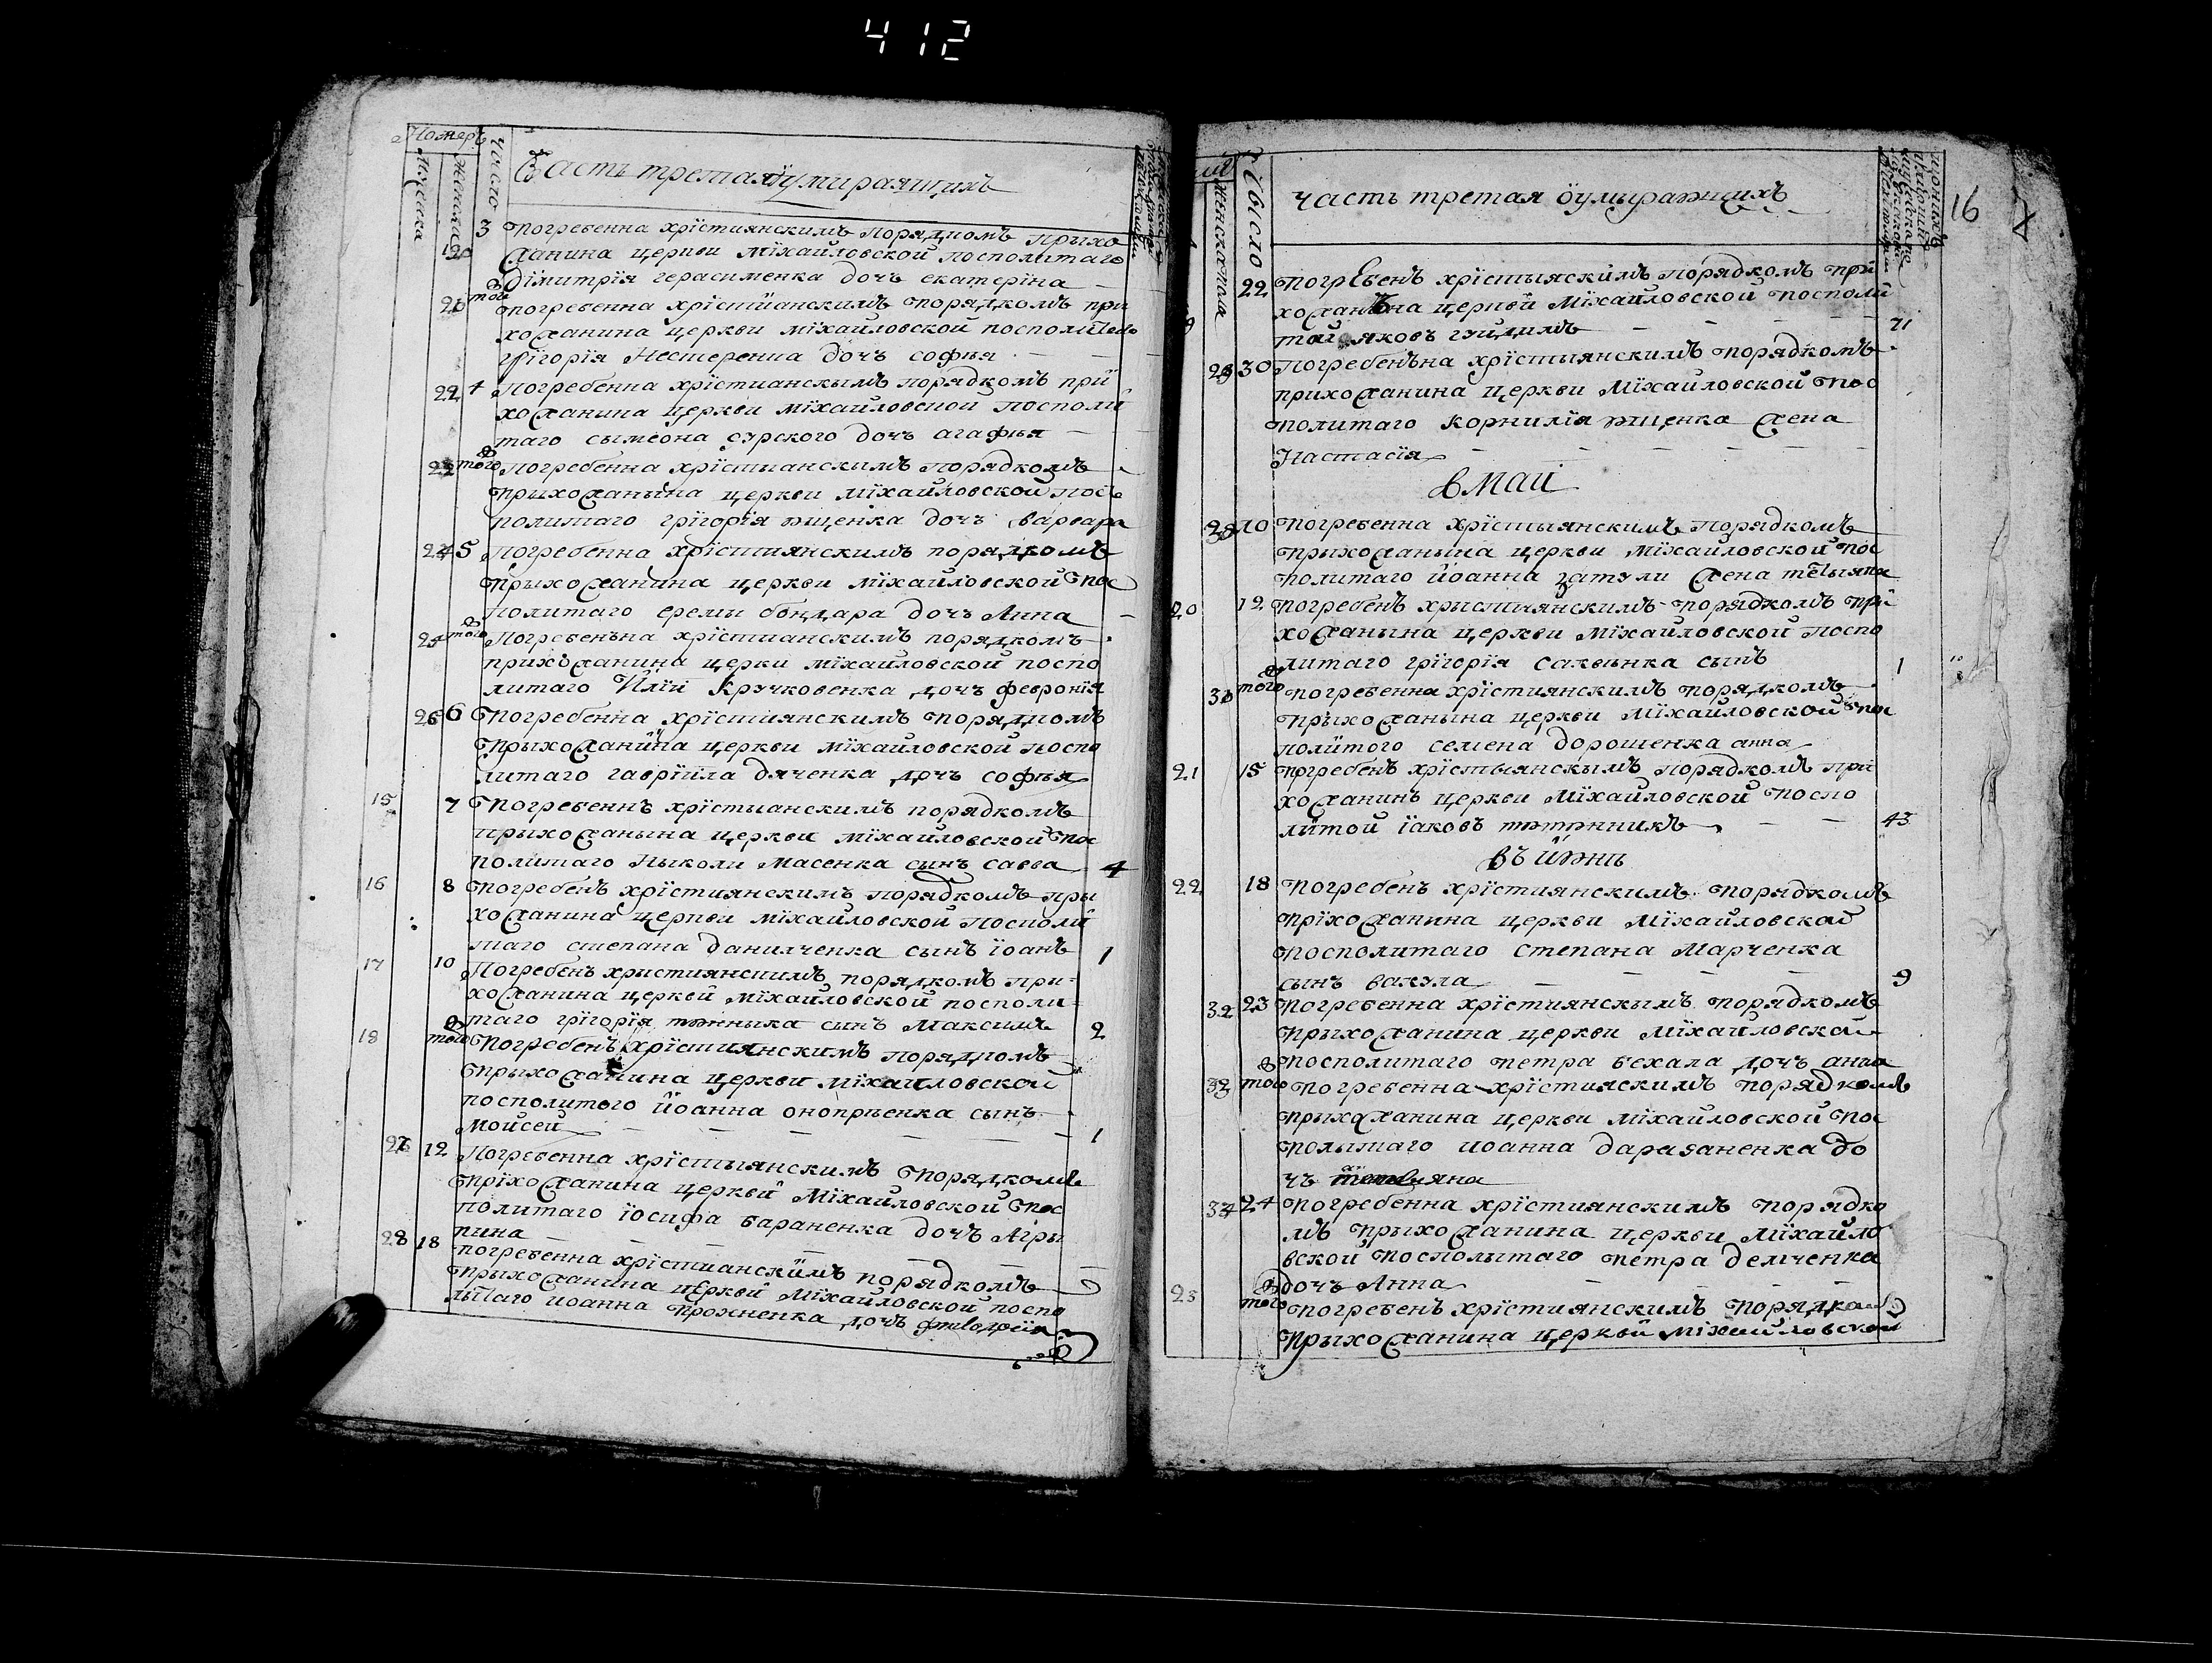 412
Номеръ
Мужеска
Женска
Число
Часть третая ѡ умирающихъ
3 погребенна хрїстиянскимъ порядкомъ прихо
жанина церкви мїхайловской посполитаго
дїмитрїя герасименка дочъ екатерїна
того погребенна хрїстїянскимъ порядкомъ при
хожанина церкви мїхайловской
грїгорїя Нестеренка дочъ софья
22 4 Погребенна хрїстианскымъ порядкомъ при
хожанина церкви мїхайловской посполи
таго сымеона сурского дочъ агафья
того погребенна хрїстианскымъ порядкомъ
прыхожанына церкви мїхайловской пос
политаго грїгорїя ющенка дочъ варвара
24 5 Погребенна хрїстиянскимъ порядкомъ
прыхожанина церкви мїхайловской пос
политаго еремы бондара дочъ Анна
25 того Погребенъна хрїстианскимъ порядкомъ
прихожанина церки мїхайловской поспо
литаго Илїи Кручковенка дочъ февронїя
26 6 Погребенна хрїстиянскимъ порядкомъ
прыхожанина церкви мїхайловской поспо
литаго гаврїила дяченка дочъ софья
15 7 Погребеннъ хрїстианскимъ порядкомъ
прыхожанына церкви мїхайловской пос
политаго Ныколи Масенка сынъ савва 4
16 8 Погребенъ хрїстиянскимъ порядкомъ пры
хожанина церкви мїхайловской посполи
таго степана данилченка сынъ їоанъ 1
17 10 Погребенъ християнскимъ порядкомъ при-
хожанина церквй мїхайловской посполи-
таго грїгорїя сынъ Максимъ 2
18 того Погребенъ хрїстиянскимъ порядкомъ
прыхожанина церкви мїхаиловской
посполитого їоанна оноприенка сынъ
Мойсей 1
27 12 Погребенна хрїстыянскимъ порядкомъ
прїхожанина церквй Мїхайловской пос
политаго їосифа бараненка дочъ Агри
пина
28 18 погребенна хрїстианскимъ порядкомъ
прыхожанина церквй Мїхайловской поспо
литаго иоанна дочъ
Женска пола
Чысло
часть третая ѡ умыраю­щихъ
16
22 погребенъ хрїстыяскимъ порядкомъ при
хожанъна церквй Мїхайловской посполи
той яковъ 71
29 30 Погребенъна хрїстыянскимъ порядкомъ
прихожанина церкви Мїхайловской пос
политаго Корнилїя ющенка жена
Настасїя
в маи
10 погребенна хрїстыянскимъ порядкомъ
прыхожанына церкви мїхайловской пос
политаго їоанна затули жена
20 12 погребенъ християнскимъ порядкомъ при
хожанына церкви Мїхайловской поспо
литаго грїгорїя саквынка сынъ 1
31 того погребенна хрїстиянскимъ порядкомъ
прыхожанына церкви Мїхайловской пос
политого семена дорошенка анна
21 15 погребенъ хрїстыянскымъ порядкомъ при
хожанинъ церкви Мїхайловской поспо
литой їаковъ 43
въ июнѣ
22 18 Погребенъ хрїстиянскимъ порядкомъ
прїхожанина церкви Мїхайловской
посполитаго Степана Марченка
сынъ вакула 9
32 23 погребенна хрїстиянскымъ порядкомъ
прыхожанина церкви Мїхайловской
посполитаго петра бехала дочъ анна
33 того погребенна хрїстияскимъ порядкомъ
прыхожанина церкви мїхайловской пос
полытаго иоанна даразаненка до
чъ
34 24 погребенна хрїстиянскимъ порядко
мъ прыхожанина церкви Мїхайло
вской посполытаго петра демченка
дочъ Анна
23 того погребенъ хрїстиянскимъ порядкомъ
прыхожанина церквй мїхайловской